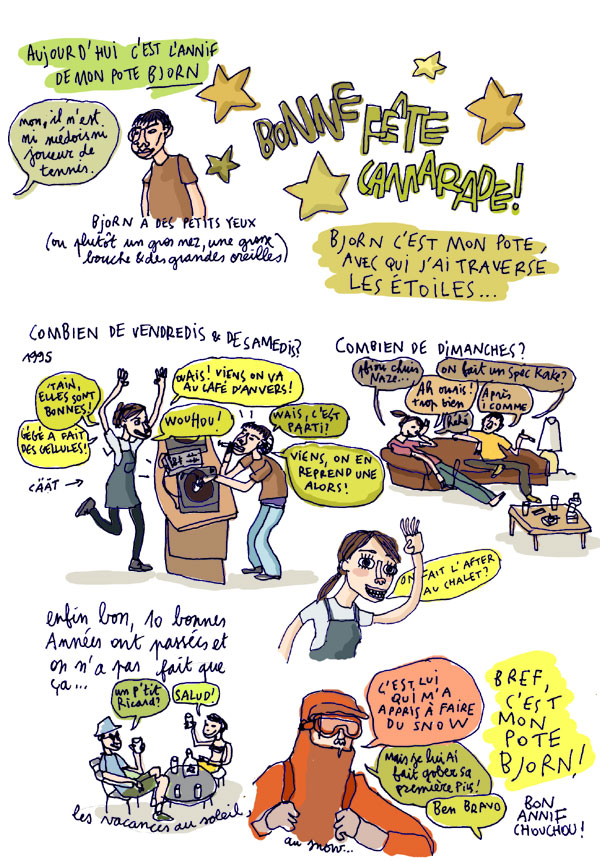 AUJOURD'HUI C'EST L'ANNIF
DE MON POTE BJORN
non, il n'est
ni suédois ni
joueur de
tennis.
BONNE FÊATE
CAMARADE!
BJORN A DES PETITS YEUX
(ou plutôt un gros nez, une grosse
bouche & des grandes oreilles)
BJORN C'EST MON POTE,
AVEC QUI J'AI TRAVERSE
LES ÉTOILES...
COMBIEN DE VENDREDIS & DE SAMEDIS?
1995
TAIN,
ELLES SONT
BONNES!
GÉGÉ A FAIT
DES GELLULES!
CÄÄT
OUAIS! VIENS ON VA
AU CAFÉ D'ANVERS!
WOUHOU!
WAIS, C'EST
PARTI!
VIENS, ON EN
REPREND UNE
ALORS!
COMBIEN DE DIMANCHES?
chuis
NAZE...
ON fait UN SPEC KAKE?
Ah ouais!
trop bien
Après
; COMME
HaHa
ON FAIT L'AFTER
AU CHALET?
enfin bon, 10 bonnes
Années ont passées et
on n'a pas fait que
ça...
un p'tit
Ricard?
SALUD!
les vacances au soleil;
C'EST LUI
QUI M'A
APPRIS À FAIRE
DU SNOW
Mais je lui Ai
fait gober sa
première Pils!
Ben BRAVO
au snow...
BREF,
C'EST
MON
POTE
BJORN!
BON
ANNIF
CHOUCHOU!